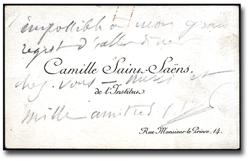 impossible à mon grand
regret d'aller dîner
Camille Saint-Saëns
de l'Institut
chez vous merci et
mille amitiés
Rue Monsieur-le-Prince, 14.